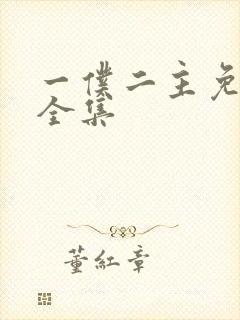 一僕二主免
全集
董紅章